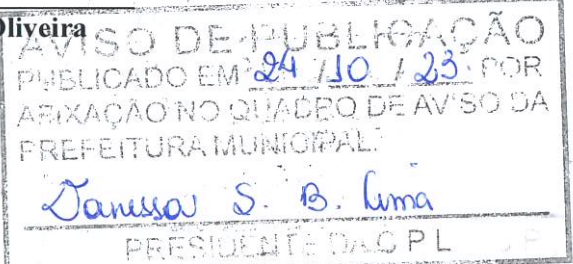 Oliveira
AVISO DE PUBLICAÇÃO
PUBLICADO EM 24 / 10 / 23 POR
AFIXAÇÃO NO QUADRO DE AVISO DA
PREFEITURA MUNICIPAL.
Vanessa S. B. Lima
PRESIDENTE DA C P L